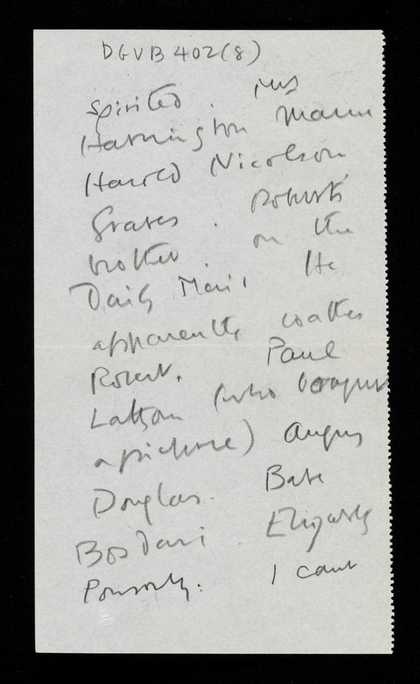 DGVB 402(8)
spirited. Mrs
Harrington Mann
Harold Nicolson
Graves. Robert's
brother. on the
Daily Mail He
apparently loathes
Robert. Paul
Latham (who bought
a picture) Angus
Douglas. Babe
Bosdari. Elizabeth
Ponsonby. I cant